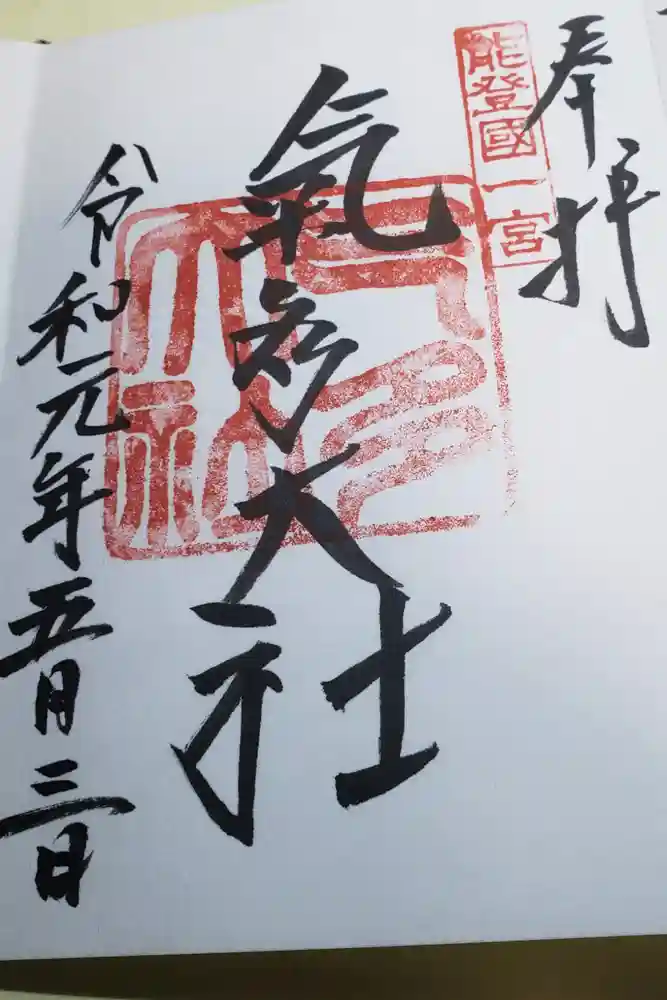 奉拝
能登國一宮
氣多大社
気多大社
令和元年五月三日